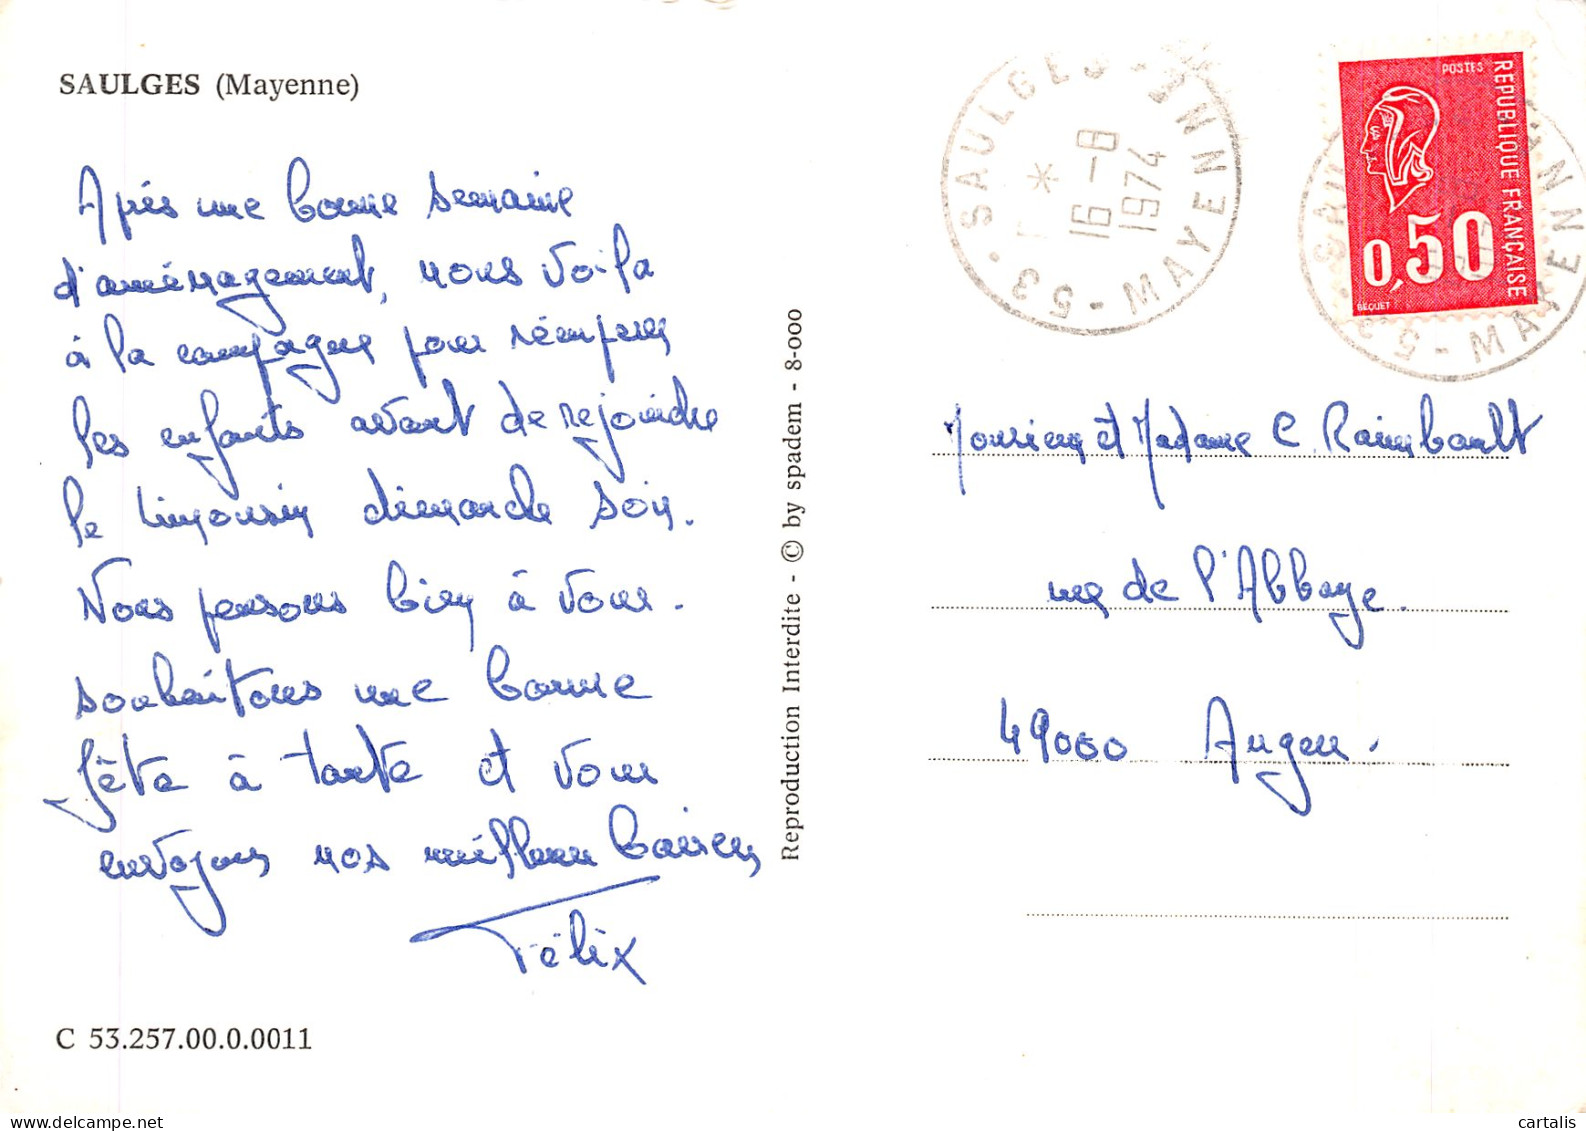 SAULGES (Mayenne)
Après une bonne semaine
d'aménagement, nous voilà
à la campagne pour récupérer
les enfants avant de rejoindre
le Limousin dimanche soir.
Nous pensons bien à vous.
souhaitons une bonne
fête à tante et vous
envoyons nos meilleurs baisers
Félix
C 53.257.00.0.0011
Reproduction Interdite - © by spadem - 8-000
SAULGES - 53 - MAYENNE
16-8
1974
POSTES
REPUBLIQUE FRANÇAISE
0,50
BEQUET
53 - MAYENNE
Monsieur et Madame C. Raimbault
rue de l'Abbaye.
49000 Angers.
delcampe.net
cartalis